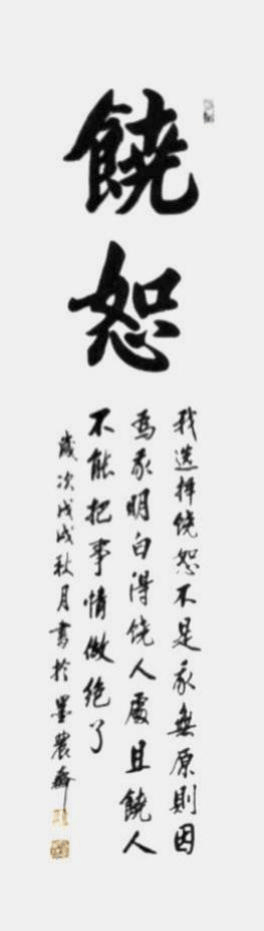 饶恕
我选择饶恕不是我无原则因
为我明白得饶人处且饶人
不能把事情做绝了
岁次戊戌秋月书于墨农斋